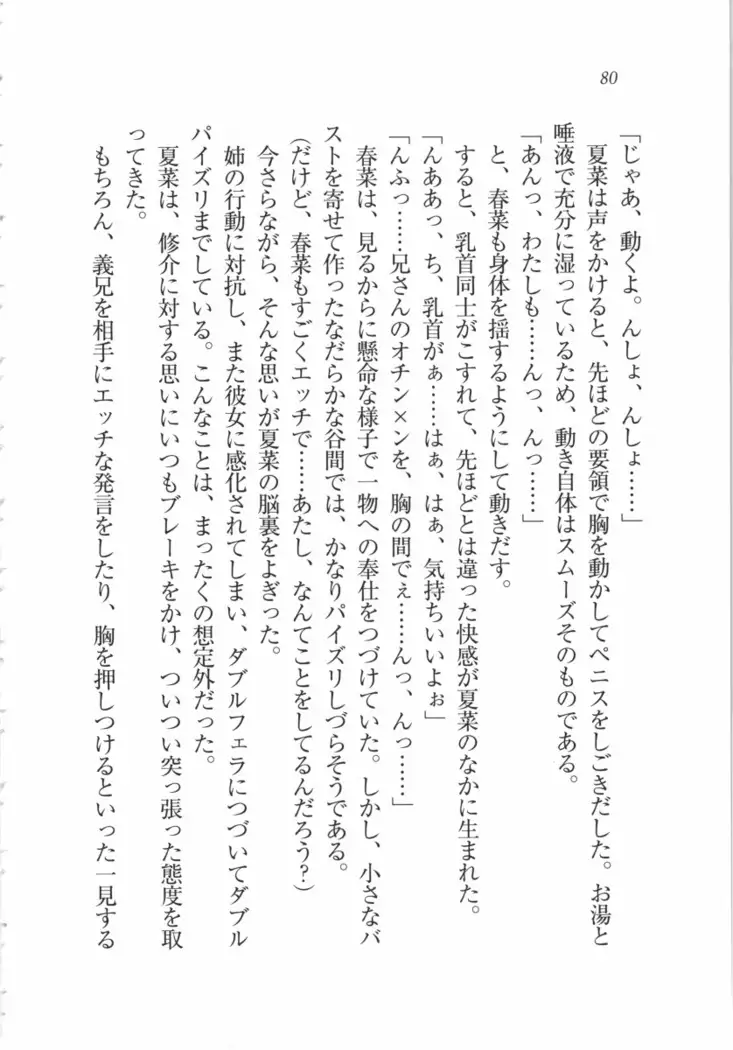 80
「じゃあ、動くよ。んしょ、んしょ……」
夏菜は声をかけると、先ほどの要領で胸を動かしてペニスをしごきだした。お湯と
唾液で充分に湿っているため、動き自体はスムーズそのものである。
「あんっ、わたしも……んっ、んっ……」
と、春菜も身体を揺するようにして動きだす。
すると、乳首同士がこすれて、先ほどとは違った快感が夏菜のなかに生まれた。
「んああっ、ち、乳首がぁ……はぁ、はぁ、気持ちいいよぉ」
「んふっ……兄さんのオチン×ンを、胸の間でぇ……んっ、んっ……」
春菜は、見るからに懸命な様子で一物への奉仕をつづけていた。しかし、小さなバ
ストを寄せて作ったなだらかな谷間では、かなりパイズリしづらそうである。
(だけど、春菜もすごくエッチで……あたし、なんてことをしてるんだろう?)
今さらながら、そんな思いが夏菜の脳裏をよぎった。
姉の行動に対抗し、また彼女に感化されてしまい、ダブルフェラにつづいてダブル
パイズリまでしている。こんなことは、まったくの想定外だった。
夏菜は、修介に対する思いにいつもブレーキをかけ、ついつい突っ張った態度を取
ってきた。
もちろん、義兄を相手にエッチな発言をしたり、胸を押しつけるといった一見する